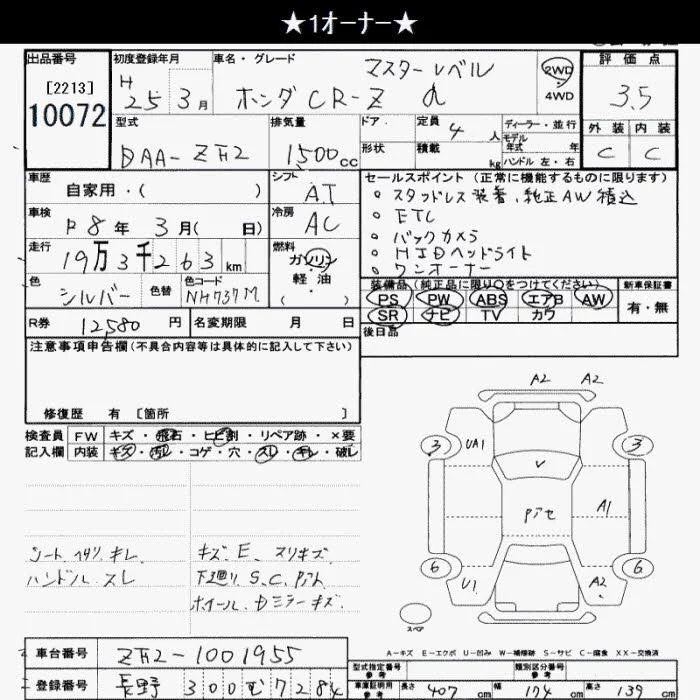 ★1オーナー★
出品番号
[2213]
10072
初度登録年月
H 25年 3月
車名・グレード
マスターレーベル
ホンダ CR-Z α
2WD
4WD
評価点
3.5
外装 内装
C C
型式
DAA-ZF2
排気量
1500cc
ドア・形状
定員 4人
積載 kg
ディーラー・並行
モデル年式 年
ハンドル 左・右
車歴
自家用・( )
シフト
AT
車検
R8年 3月( 日)
冷房
AC
走行
19万3千263km
燃料
ガソリン・軽油・( )
色
シルバー
色替
色コード
NH737M
R券 12,580円
名変期限 月 日
セールスポイント(正常に機能するものに限ります)
。スタッドレス装着、純正AW積込
。ETC
。バックカメラ
。HIDヘッドライト
。ワンオーナー
装備品(純正品に限り○をつけてください)
PS PW ABS エアB AW
SR ナビ TV カワ
新車保証書
有・無
後日品
注意事項申告欄(不具合内容等は具体的に記入して下さい)
修復歴 有 [箇所 ]
検査員記入欄
FW キズ・飛石・ヒビ割・リペア跡・×要
内装 キズ・汚レ・コゲ・穴・スレ・キレ・破レ
シート ヘタリ キレ
ハンドル スレ
キズ、E、スリキズ
下廻り S、C、Pアト
ホイール、ドミラーキズ
A2 A2
3 UA1 3
V
Pアセ A1
6 U1 A2 6
スペア
A-キズ E-エクボ U-凹み W-補修跡 S-サビ C-腐食 XX-交換済
車台番号 ZF2-1001955
登録番号 長野 300 む 7284
型式指定番号 参考
類別区分番号 参考
車庫証明用 参考
長さ 407cm 幅 174cm 高さ 139cm